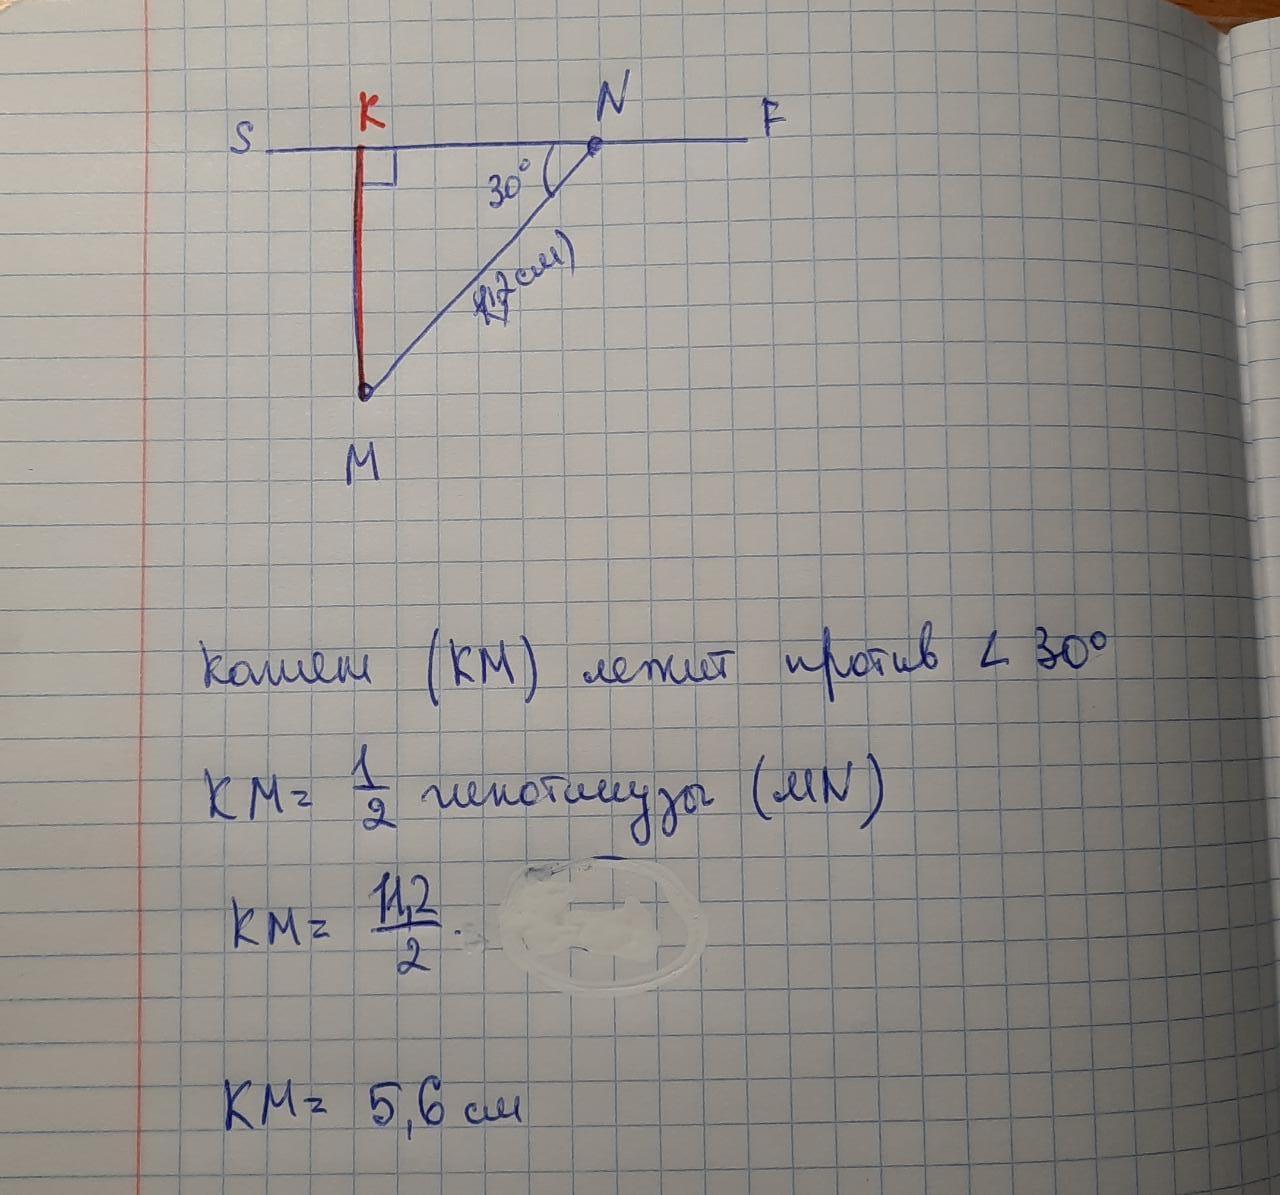 S K N F
30°
11,2 см)
M
Катет (KM) лежит против ∠ 30°
KM = 1/2 гипотинузы (MN)
KM = 11,2/2.
KM = 5,6 см